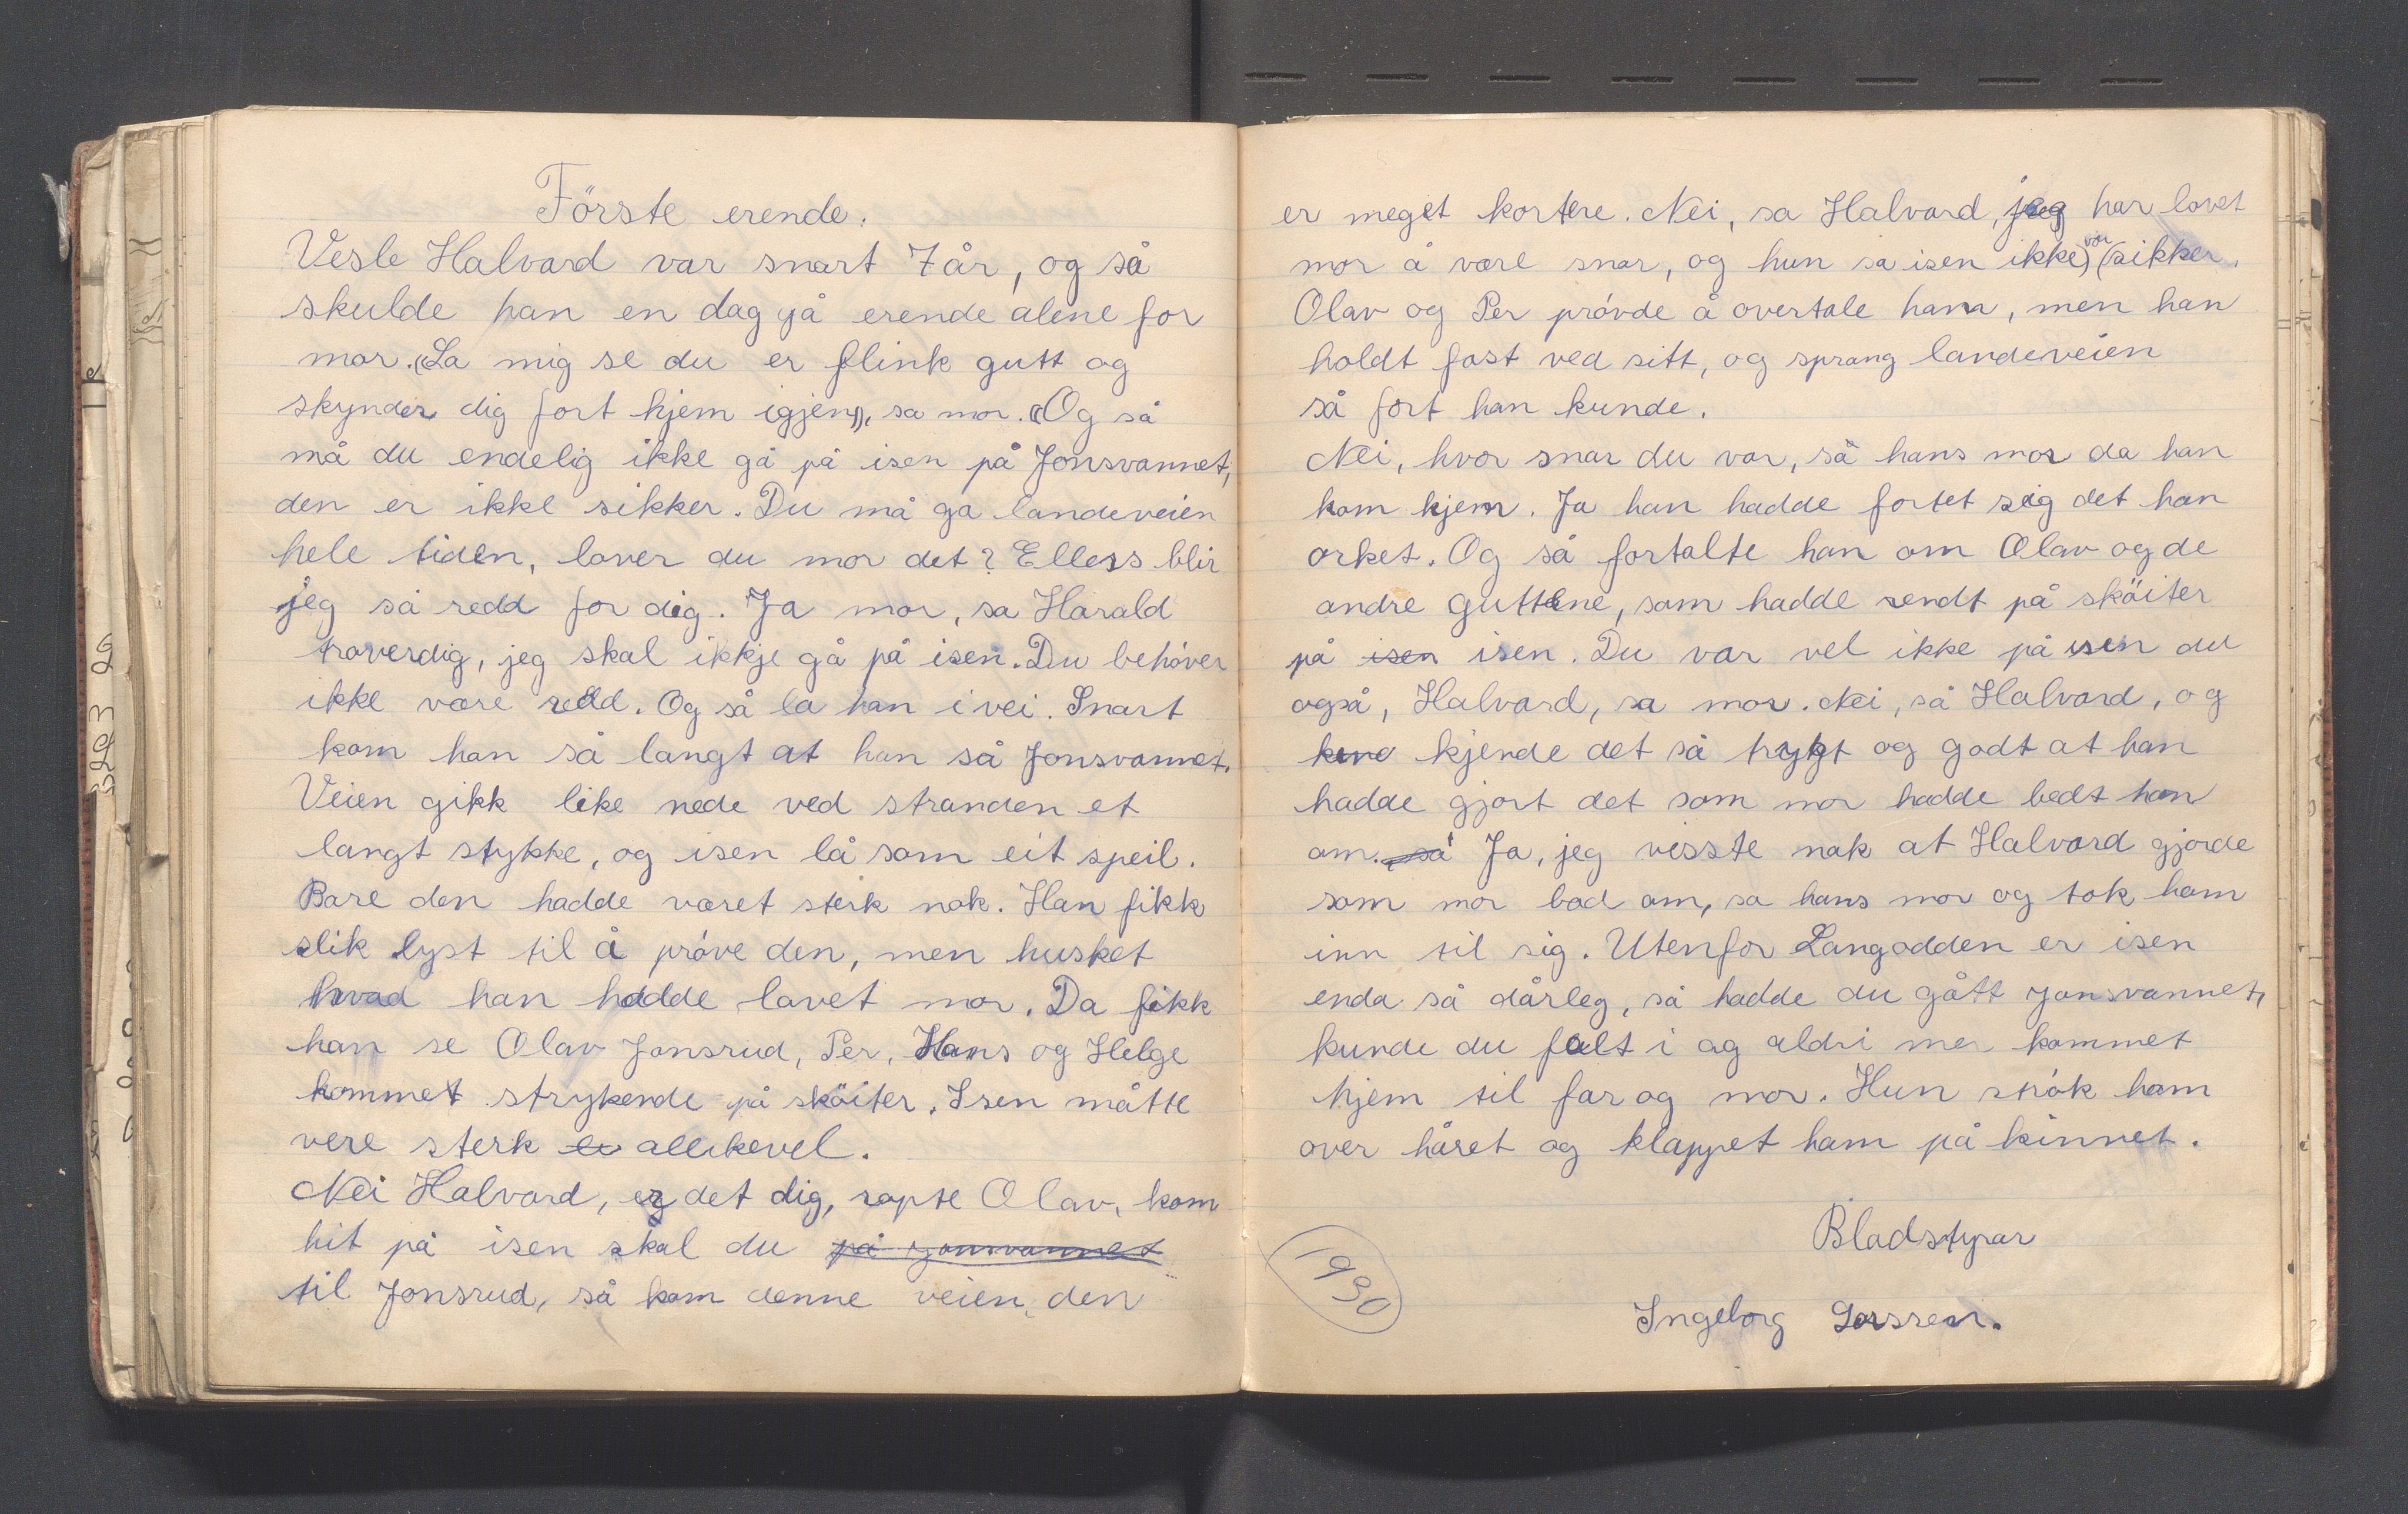 Förste erende.
Vesle Halvard var snart 7 år, og så
skulde han en dag gå erende alene for
mor. (La mig se du er flink gutt og
skynder dig fort hjem igjen), sa mor. (Og så
må du endelig ikke gå på isen på Jonsvannet,
den er ikke sikker. Du må ga landeveien
hele tiden, lover du mor det? Ellers blir
jeg så redd for dig. Ja mor, sa Harald
troverdig, jeg skal ikkje gå på isen. Du behöver
ikke være redd. Og så la han i vei. Snart
kom han så langt at han så Jonsvannet.
Veien gikk like nede ved stranden et
langt stykke, og isen lå som eit speil.
Bare den hadde været sterk nok. Han fikk
slik lyst til å pröve den, men husket
hvad han hadde lovet mor. Da fikk
han se Olav Jonsrud, Per, Hans og Helge
kommet strykende på sköiter. Isen måtte
vere sterk allikevel.
Nei Halvard, er det dig, ropte Olav, kom
hit på isen skal du på Jonsvannet
til Jonsrud, så kom denne veien, den
er meget kortere. Nei, sa Halvard, jeg har lovet
mor å være snar, og hun sa isen ikke) var (sikker.
Olav og Per prövde å overtale ham, men han
holdt fast ved sitt, og sprang landeveien
så fort han kunde.
Nei, hvor snar du var, så hans mor da han
kom hjem. Ja han hadde fortet sig det han
orket. Og så fortalte han om Olav og de
andre guttene, som hadde rendt på sköiter
på isen isen. Du var vel ikke på isen du
også, Halvard, sa mor. Nei, så Halvard, og
kjende det så trygt og godt at han
hadde gjort det som mor hadde bedt han
om. så Ja, jeg visste nok at Halvard gjorde
som mor bad om, sa hans mor og tok ham
inn til sig. Utenfor Langodden er isen
enda så dårleg, så hadde du gått Jonsvannet,
kunde du falt i og aldri mer kommet
hjem til far og mor. Hun strök ham
over håret og klappet ham på kinnet.
Bladstyrar
1930
Ingeborg